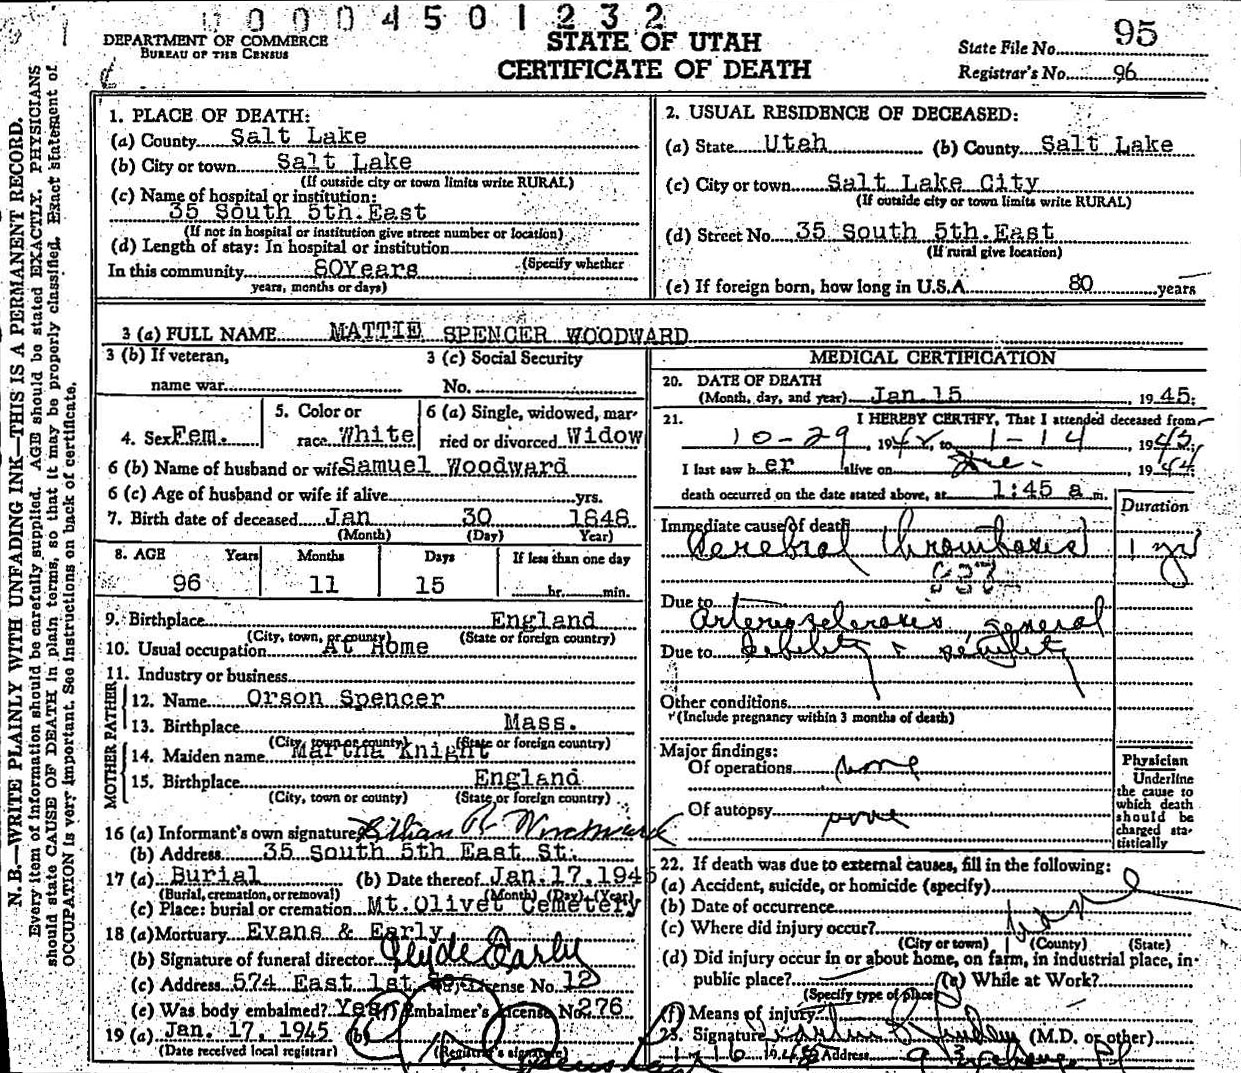 0004501232
DEPARTMENT OF COMMERCE
BUREAU OF THE CENSUS
STATE OF UTAH
CERTIFICATE OF DEATH
State File No. 95
Registrar's No. 96
N. B.—WRITE PLAINLY WITH UNFADING INK—THIS IS A PERMANENT RECORD.
Every item of information should be carefully supplied. AGE should be stated EXACTLY. PHYSICIANS
should state CAUSE OF DEATH in plain terms, so that it may be properly classified. Exact statement of
OCCUPATION is very important. See instructions on back of certificate.
1. PLACE OF DEATH:
(a) County Salt Lake
(b) City or town Salt Lake
(If outside city or town limits write RURAL)
(c) Name of hospital or institution:
35 South 5th.East
(If not in hospital or institution give street number or location)
(d) Length of stay: In hospital or institution
(Specify whether
In this community 80Years
years, months or days)
2. USUAL RESIDENCE OF DECEASED:
(a) State Utah (b) County Salt Lake
(c) City or town Salt Lake City
(If outside city or town limits write RURAL)
(d) Street No. 35 South 5th.East
(If rural give location)
(e) If foreign born, how long in U.S.A. 80 years
3 (a) FULL NAME MATTIE SPENCER WOODWARD
3 (b) If veteran,
name war
3 (c) Social Security
No.
4. Sex Fem.
5. Color or
race White
6 (a) Single, widowed, mar-
ried or divorced Widow
6 (b) Name of husband or wife Samuel Woodward
6 (c) Age of husband or wife if alive yrs.
7. Birth date of deceased Jan 30 1848
(Month) (Day) Year)
8. AGE Years Months Days If less than one day
96 11 15 hr. min.
9. Birthplace England
(City, town, or county) (State or foreign country)
10. Usual occupation At Home
11. Industry or business
FATHER
12. Name Orson Spencer
13. Birthplace Mass.
(City, town or county) (State or foreign country)
MOTHER
14. Maiden name Martha Knight
15. Birthplace England
(City, town or county) (State or foreign country)
16 (a) Informant's own signature Lillian R Woodward
(b) Address 35 South 5th East St.
17 (a) Burial (b) Date thereof Jan.17,1945
(Burial, cremation, or removal) (Month) (Day) (Year)
(c) Place: burial or cremation Mt.Olivet Cemetery
18 (a) Mortuary Evans & Early
(b) Signature of funeral director Clyde Early
(c) Address 574 East 1st License No. 12
(e) Was body embalmed? Yes Embalmer's License No. 276
19 (a) Jan. 17, 1945 (b)
(Date received local registrar) (Registrar's signature)
MEDICAL CERTIFICATION
20. DATE OF DEATH
(Month, day, and year) Jan.15, 1945.
21. I HEREBY CERTIFY, That I attended deceased from
10-29, 1942, to 1-14, 1945,
I last saw her alive on Dec., 1944;
death occurred on the date stated above, at 1:45 a m.
Duration
Immediate cause of death
Cerebral thrombosis 1 yr
Due to
Arteriosclerosis, general
Due to debility & senility
Other conditions
(Include pregnancy within 3 months of death)
Major findings:
Of operations none
Of autopsy none
Physician
Underline
the cause to
which death
should be
charged sta-
tistically
22. If death was due to external causes, fill in the following:
(a) Accident, suicide, or homicide (specify)
(b) Date of occurrence
(c) Where did injury occur?
(City or town) (County) (State)
(d) Did injury occur in or about home, on farm, in industrial place, in
public place? (e) While at Work?
(Specify type of place)
(f) Means of injury?
23. Signature (M.D. or other)
Address